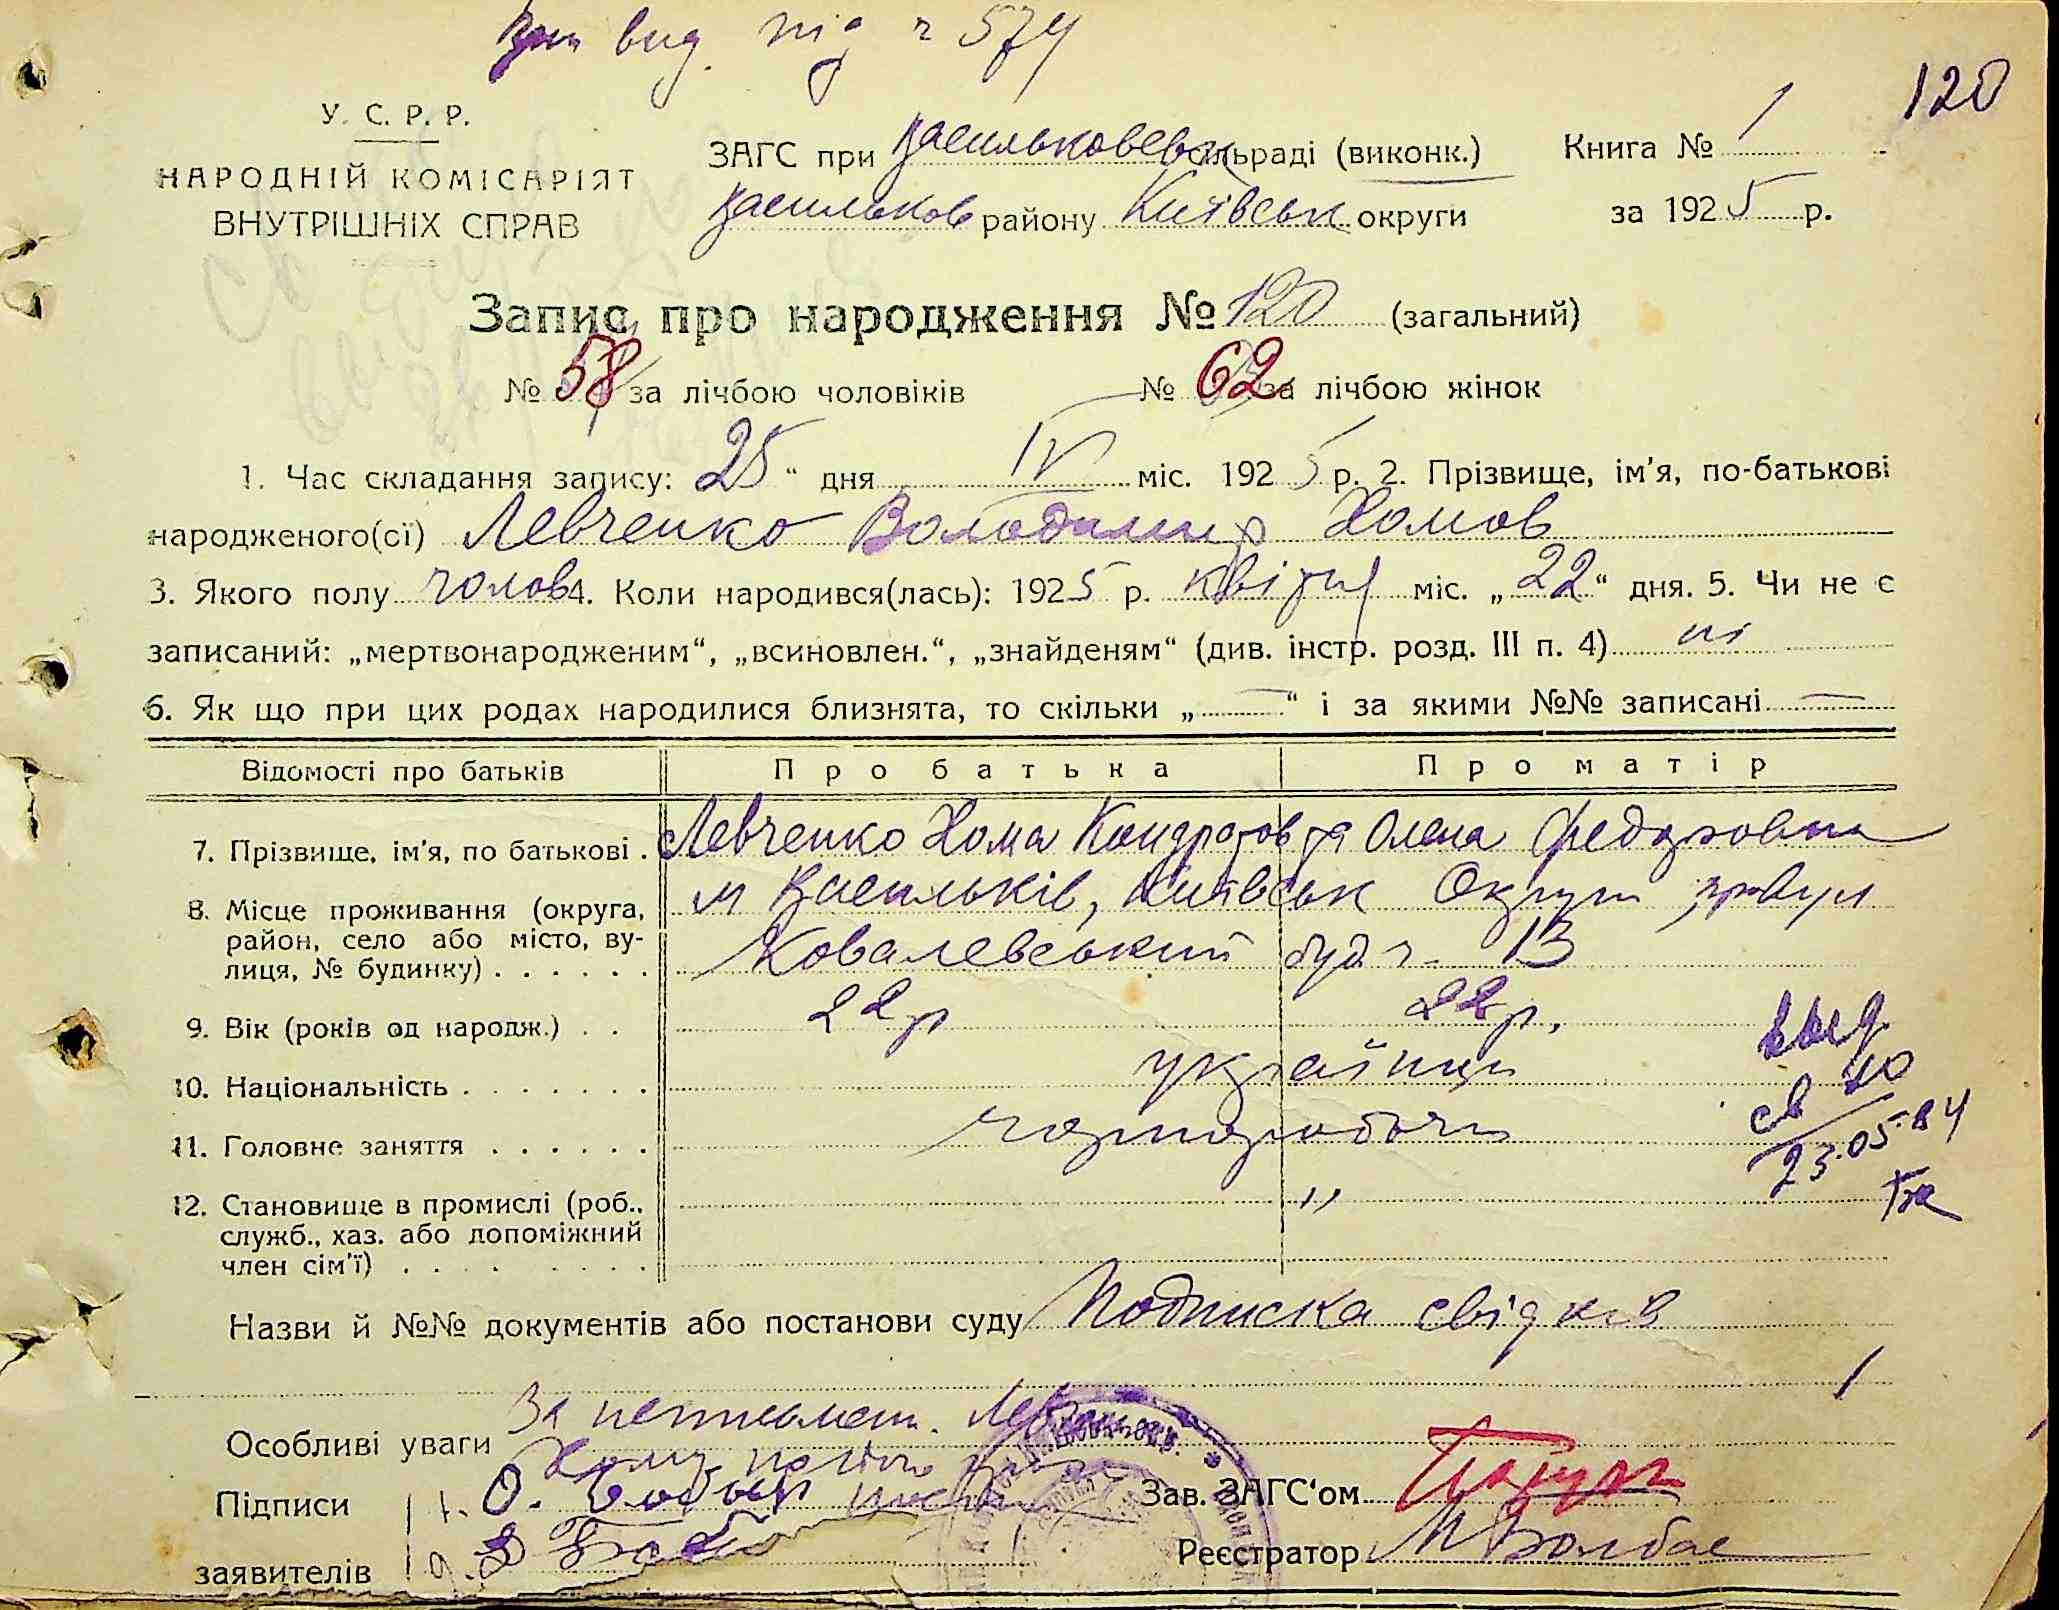 вид. під ч 574
120
У. С. Р. Р.
НАРОДНІЙ КОМІСАРІЯТ
ВНУТРІШНІХ СПРАВ
ЗАГС при Васильковськ сільраді (виконк.) Книга № 1
Васильков району Київськ округи за 1925 р.
Запис про народження № 120 (загальний)
№ 58 за лічбою чоловіків № 62 за лічбою жінок
1. Час складання запису: 25 “ дня IV міс. 1925 р. 2. Прізвище, ім'я, по-батькові
народженого(сї) Левченко Володимир Хомов
3. Якого полу чолов 4. Коли народився(лась): 1925 р. квітня міс. „22“ дня. 5. Чи не є
записаний: „мертвонародженим“, „всиновлен.“, „знайденям“ (див. інстр. розд. III п. 4) ні
6. Як що при цих родах народилися близнята, то скільки „—“ і за якими №№ записані —
Відомості про батьків Про батька Про матір
7. Прізвище, ім'я, по батькові . Левченко Хома Кондратов та Олена Федоровна
8. Місце проживання (округа, м Васильків, Київськ Округи провул
район, село або місто, ву-
лиця, № будинку) . . . . . . Ковалевський буд ч. 13
9. Вік (років од народж.) . . 22 р 22 р.
10. Національність . . . . . . . українці
11. Головне заняття . . . . . . чорноробочи
12. Становище в промислі (роб., "
служб., хаз. або допоміжний
член сім'ї) . . . . . . . .
выд
св 40
23.05.84
Назви й №№ документів або постанови суду Подписка свідків
1
Особливі уваги За неписьмен. Левчен
Хому
Підписи 1. О.
заявителів
Зав. ЗАГС'ом
Реєстратор М